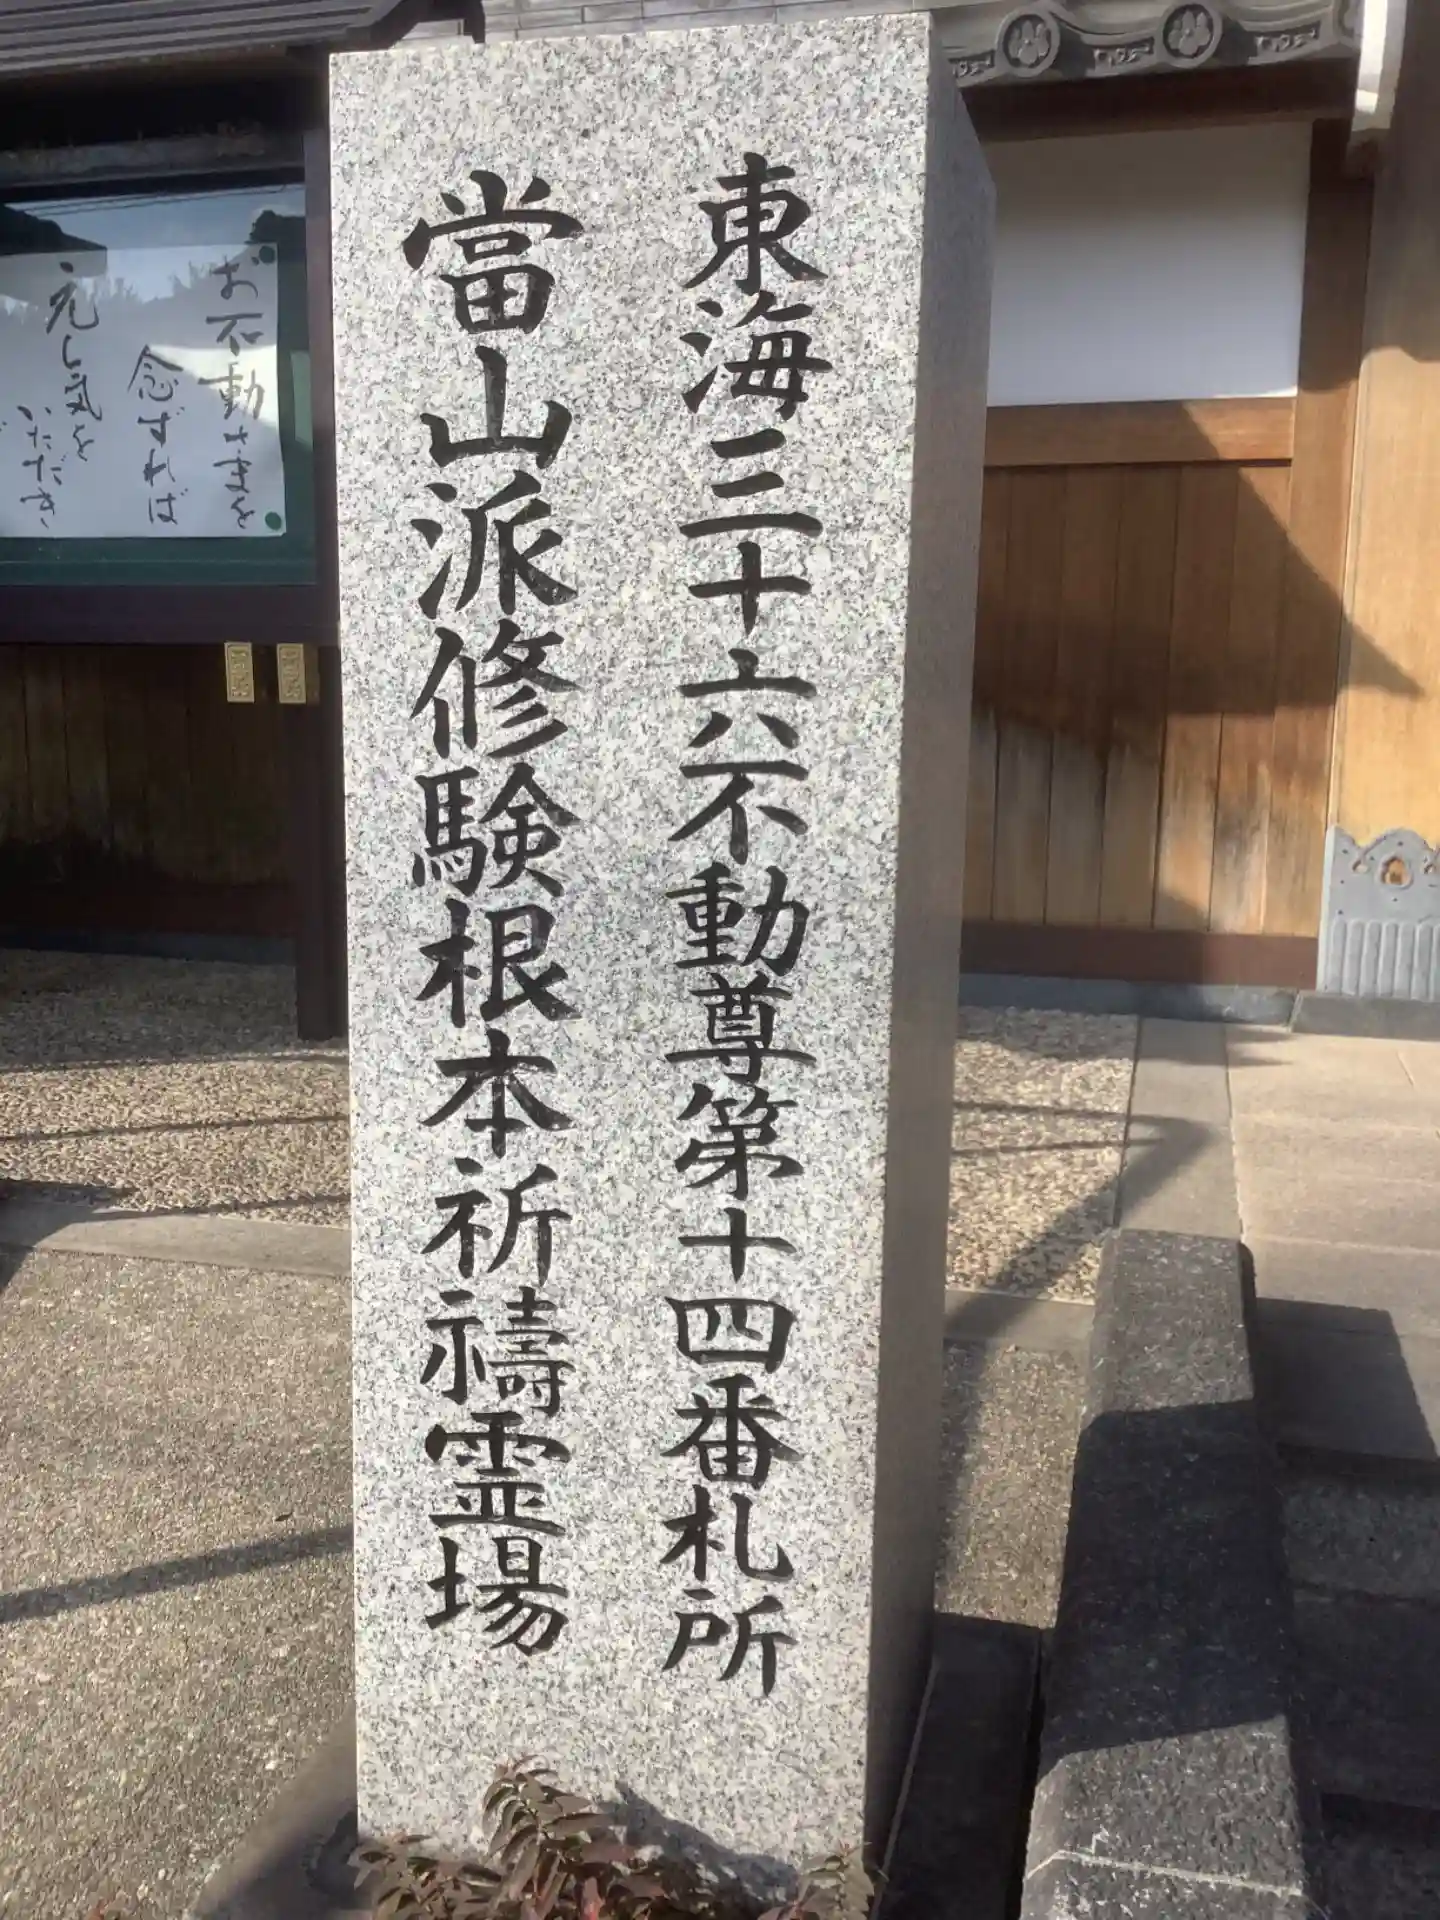 東海三十六不動尊第十四番札所
當山派修験根本祈禱霊場
お不動さまを
念ずれば
元気を
いただき